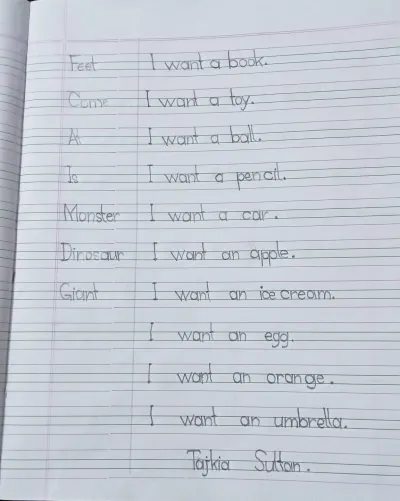 Feet I want a book.
Come I want a toy.
At I want a ball.
Is I want a pencil.
Monster I want a car.
Dinosaur I want an apple.
Giant I want an ice cream.
I want an egg.
I want an orange.
I want an umbrella.
Tajkia Sultan.